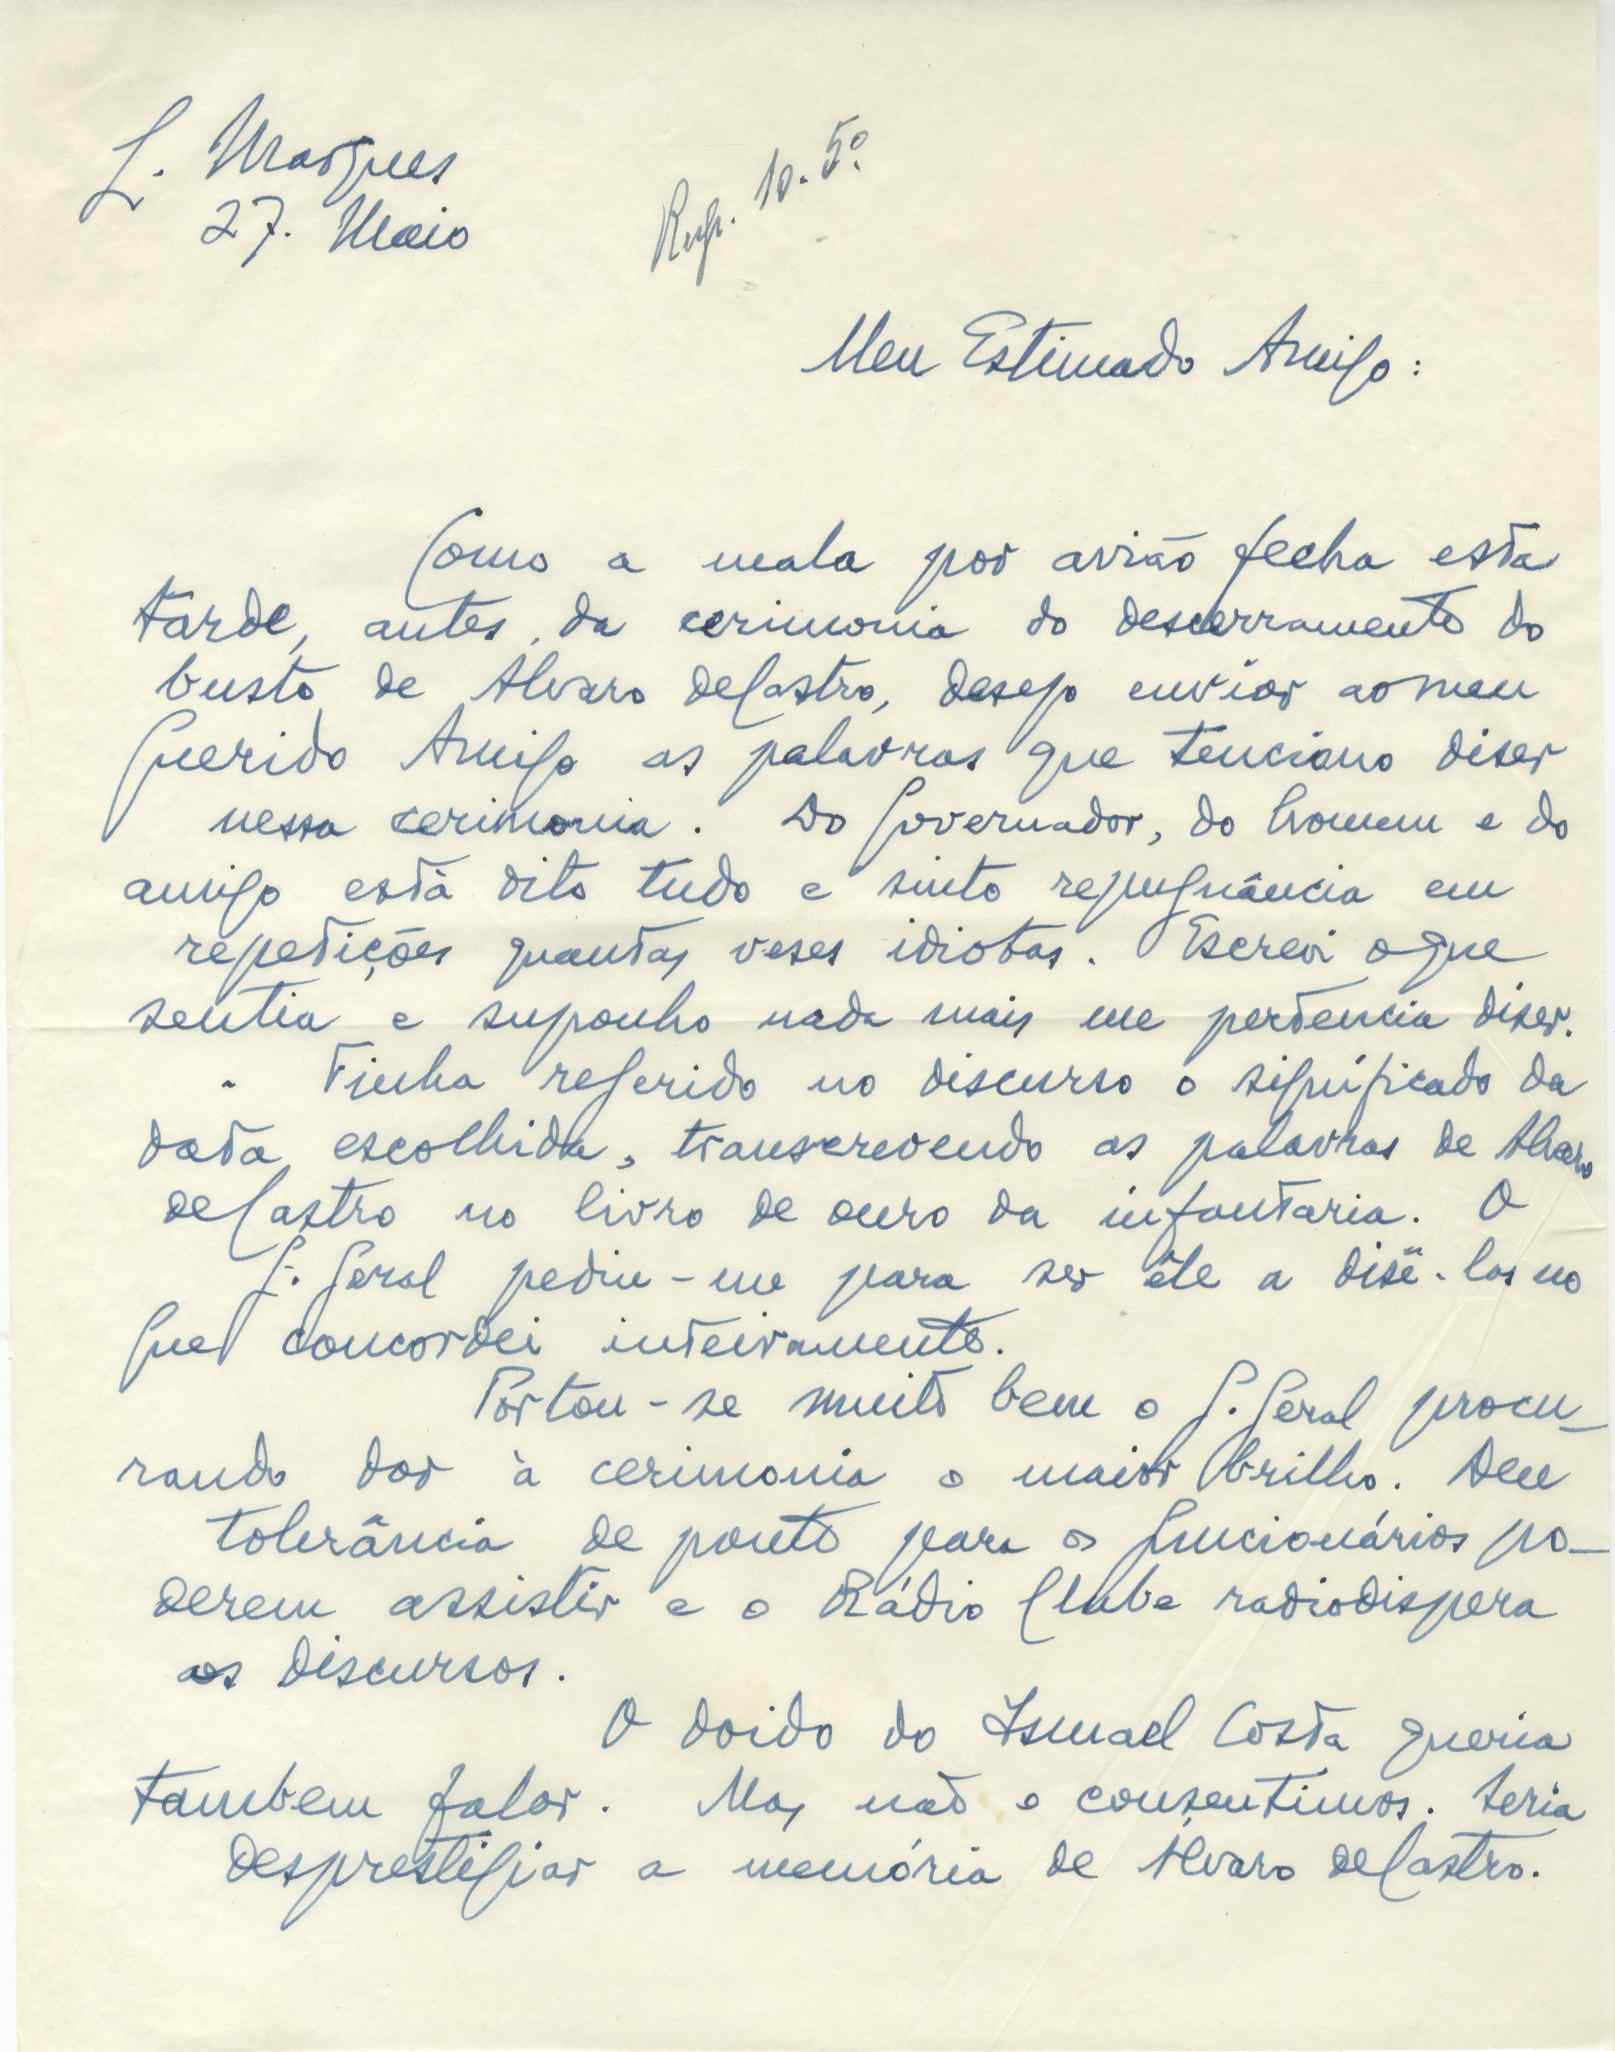 L. Marques
27. Maio
Resp. 10. 5º.
Meu Estimado Amigo:
Como a mala por avião fecha esta
tarde, antes da cerimonia do descerramento do
busto de Alvaro de Castro, desejo enviar ao meu
Querido Amigo as palavras que tenciono diser
nessa cerimonia. Do Governador, do homem e do
amigo está dito tudo e sinto repugnância em
repetições quantas veses idiotas. Escrevi o que
sentia e suponho nada mais me pertencia diser.
Tinha referido no discurso o significado da
data escolhida, transcrevendo as palavras de Alvaro
de Castro no livro de ouro da infantaria. O
G. Geral pediu-me para ser êle a disê-las no
que concordei inteiramente.
Portou-se muito bem o G. Geral procu-
rando dar à cerimonia o maior brilho. Deu
tolerância de ponto para os funcionários po-
derem assistir e o Rádio Clube radiodispera
os discursos.
O doido do Ismael Costa queria
tambem falar. Mas não o consentimos. Seria
desprestigiar a memória de Alvaro de Castro.